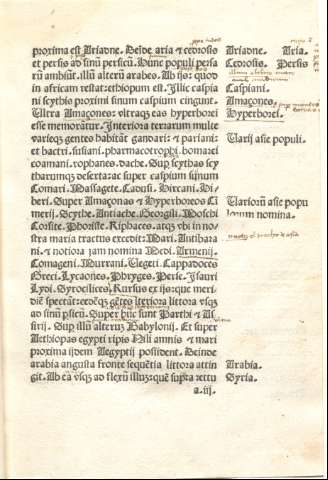 proxima est Ariadne. Deide aria & cedrosis
et persis ad sinũ persicũ. Hũnc populi persa
rũ ambiũt. illũ alterũ arabes. Ab ijs: quod
in africam restat: ethiopum est. Illic caspia
ni scythis proximi sinum caspium cingunt.
Ultra Amaçones: vltraqȝ eas hyperborei
esse memorãtur. Interiora terrarum multe
varieqȝ gentes habitãt gandari: & pariani:
et bactri: susiani: pharmacotrophi: bomarei
coamani: rophanes: dache. Sup scythas scy
tharumqȝ deserta: ac super caspium sinum
Comari. Massagete. Cadusi. Hircani. Hi
beri. Super Amaçonas & Hyperboreos Ci
merij. Scythe. Antiache. Georgili. Moschi
Corsite. Phoriste. Riphaces. atqȝ vbi in no
stra maria tractus excedit: Mari. Antibara
ni. & notiora jam nomina Medi. Armenij.
Comageni. Murrani. Uegeti. Cappadoces
Greci. Lycaones. Phryges. Perse. Isauri
Lydi. Syrocilices. Rursus ex ijs: que meri
diẽ spectãt: eedẽqȝ gẽtes īteriora littora vsqȝ
ad sinũ p̃sicũ. Super huc sunt Parthi & As
sirij. Sup illũ alterũ Babylonij. Et super
Aethiopas egypti ripis Nili amnis & mari
proxima ijdem Aegyptij possidẽt. Deinde
arabia angusta fronte sequẽtia littora attin
git. Ab ea vsqȝ ad flexũ illuȝ: quẽ supra rettu
a.iij.
Ariadne. Aria.
Cedrosis. Persis
Caspiani.
Amaçones.
Hyperborei.
Uarij asie populi.
Uariorũ asie popu
lorum nomina.
Arabia.
Syria.